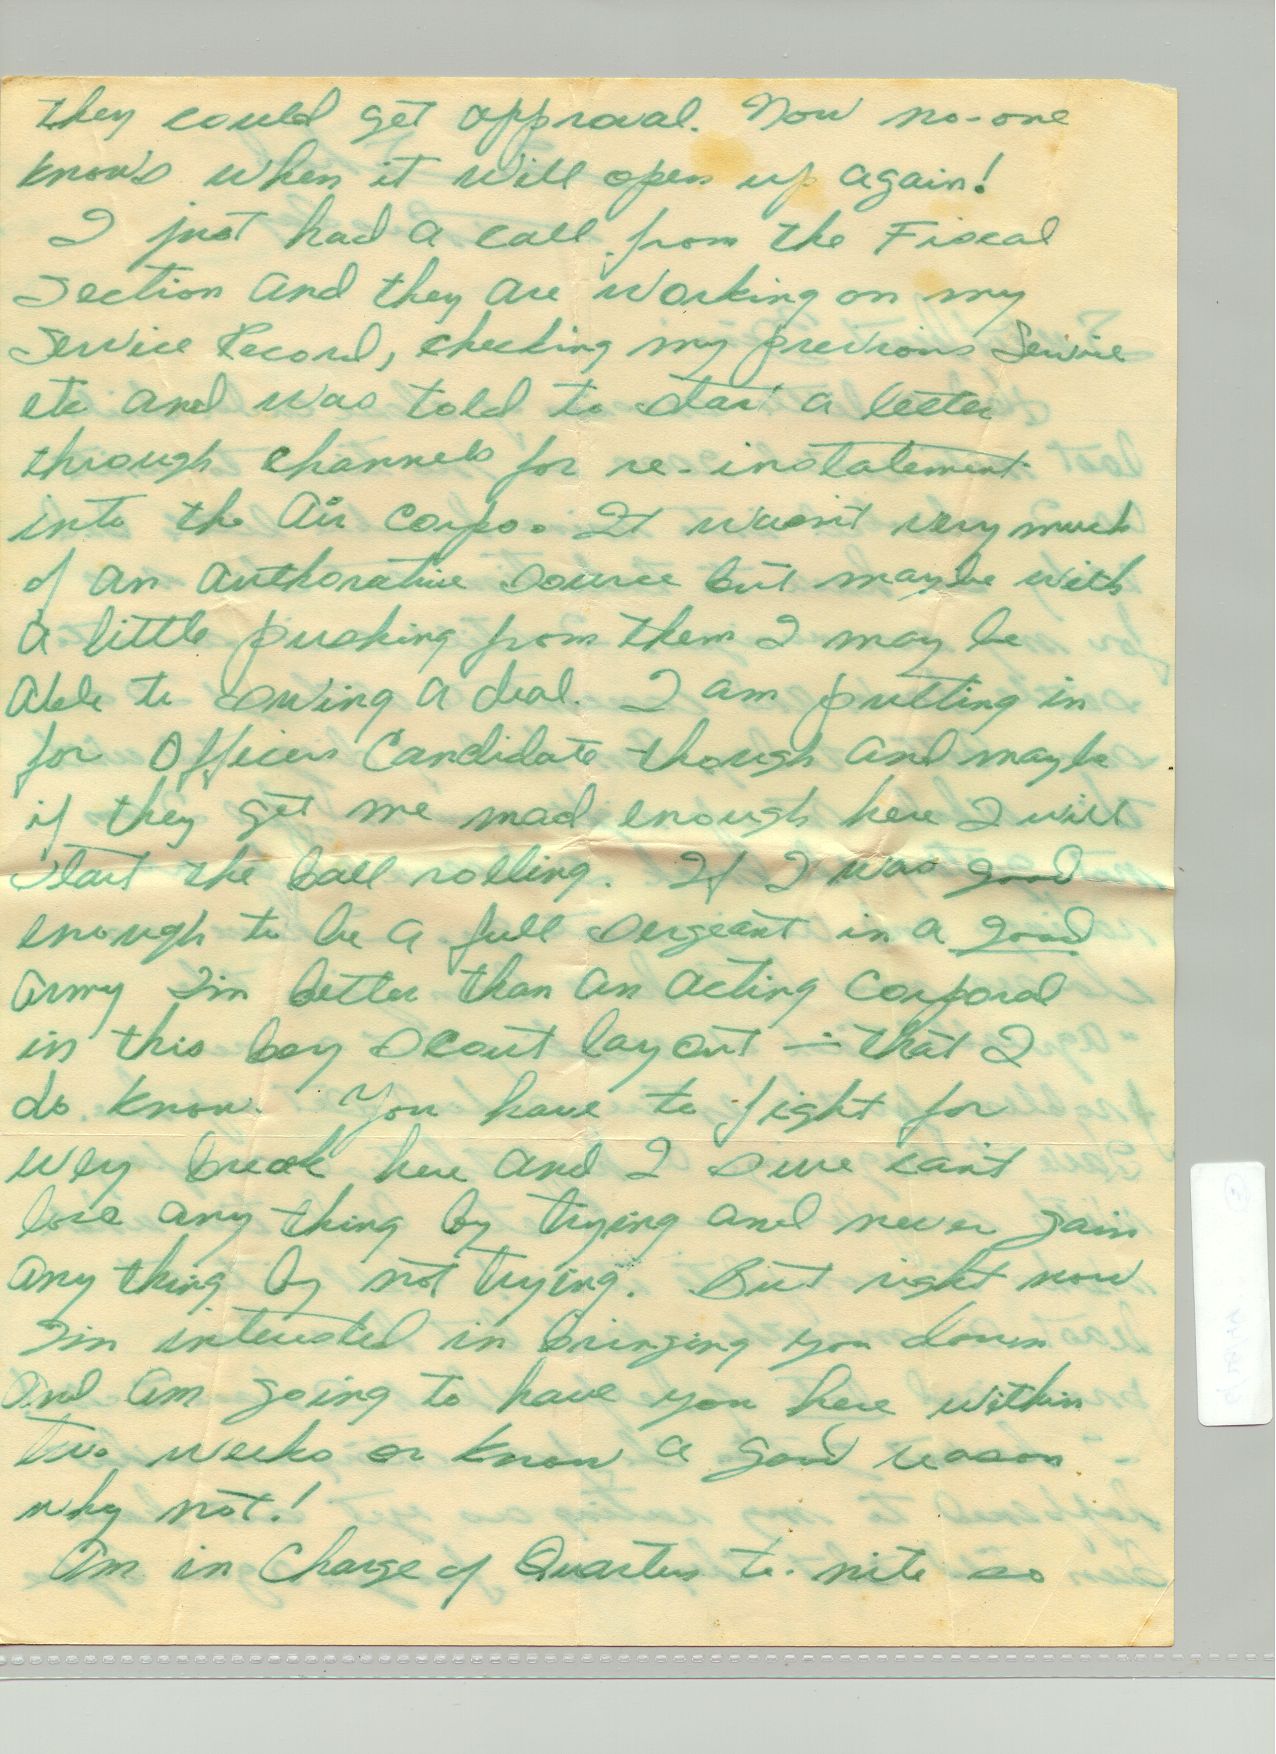 they could get approval. Now no-one
knows when it will open up again!
I just had a call from the Fiscal
Section and they are working on my
Service Record, checking my previous Service
etc and was told to start a letter
through channels for re-instatement
into the Air Corps. It wasn't very much
of an authorative source but maybe with
a little pushing from them I may be
able to swing a deal. I am putting in
for Officers Candidate though and maybe
if they get me mad enough here I will
start the ball rolling. If I was good
enough to be a full sergeant in a good
army I'm better than an acting corporal
in this boy scout layout — that I
do know. You have to fight for
every break here and I sure can't
lose any thing by trying and never gain
any thing by not trying. But right now
I'm interested in bringing you down
and am going to have you here within
two weeks or know a good reason
why not!
Am in Charge of Quarters to-nite so